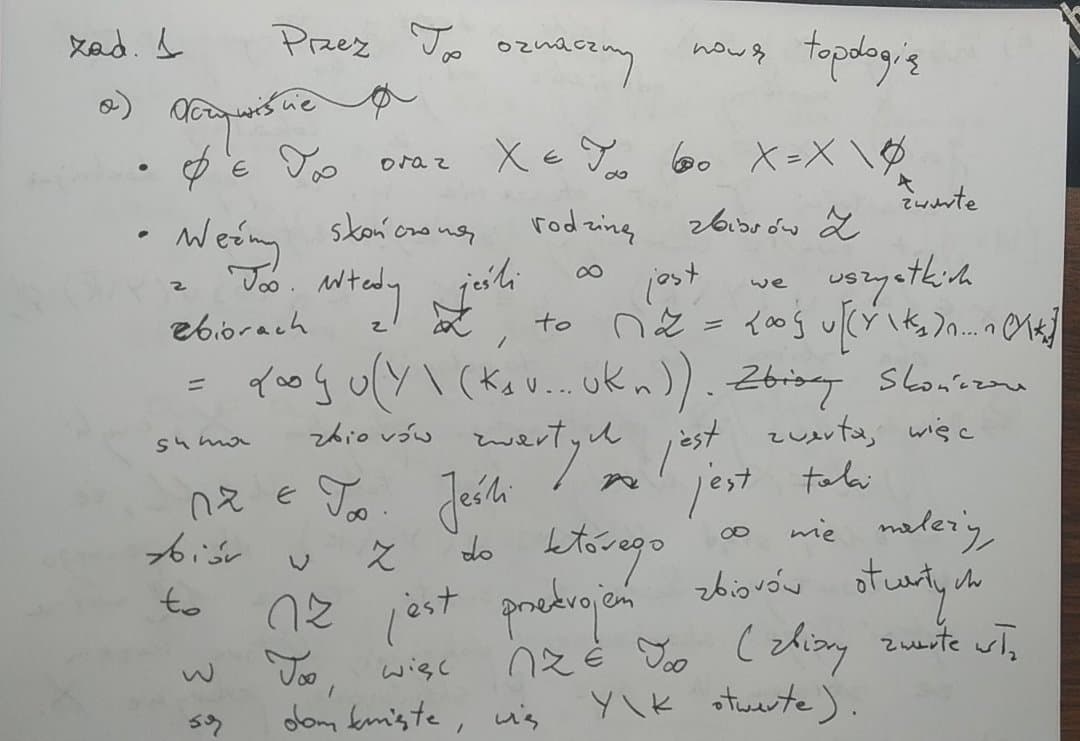 zad. 1 Przez T∞ oznaczmy nową topologię
a) Oczywiście ∅
• ∅ ∈ T∞ oraz X ∈ T∞ bo X = X \ ∅
zwarte
• Weźmy skończoną rodzinę zbiorów Z
z T∞. Wtedy jeśli ∞ jest we wszystkich
zbiorach z Z, to ∩Z = {∞} ∪ [(Y\K₁)∩...∩(Y\Kₙ)]
= {∞} ∪ (Y \ (K₁ ∪ ... ∪ Kₙ)). Zbiory Skończona
suma zbiorów zwartych jest zwarta, więc
∩Z ∈ T∞. Jeśli jest taki
zbiór w Z do którego ∞ nie należy,
to ∩Z jest przekrojem zbiorów otwartych
w T∞, więc ∩Z ∈ T∞ (zbiory zwarte w T₂
są domknięte, więc Y\K otwarte).